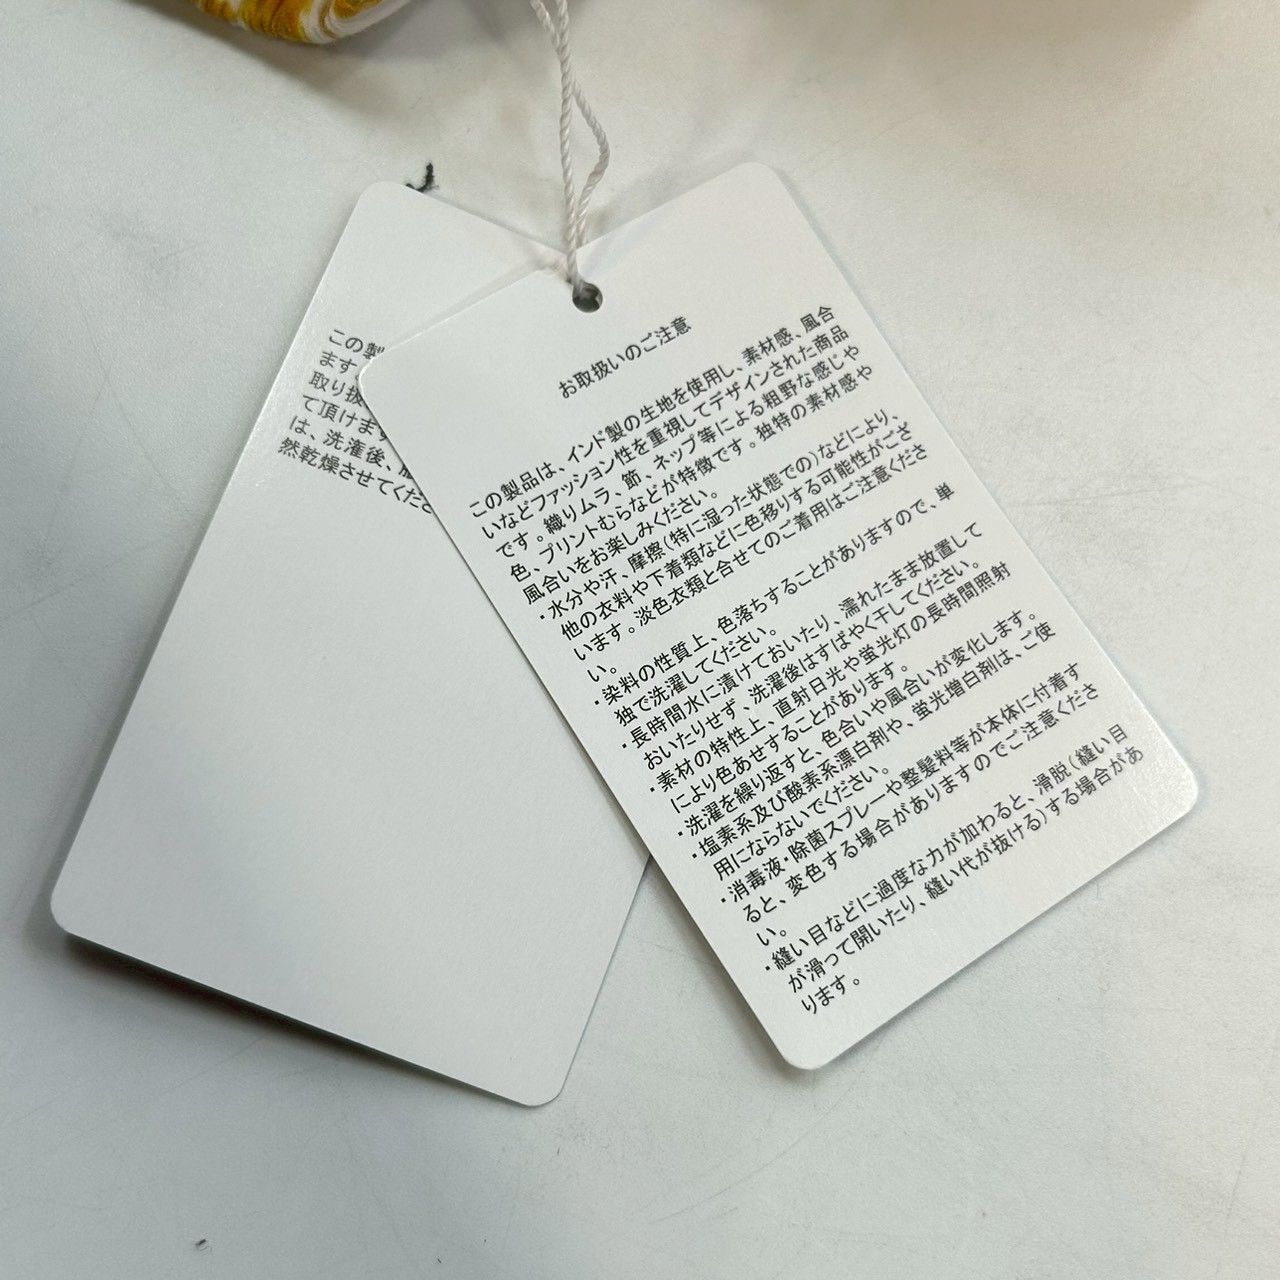 この製
ます
取り扱
て頂けます
は、洗濯後、
然乾燥させてくださ
お取扱いのご注意
この製品は、インド製の生地を使用し、素材感、風合
いなどファッション性を重視してデザインされた商品
です。織りムラ、節、ネップ等による粗野な感じや
色、プリントむらなどが特徴です。独特の素材感や
風合いをお楽しみください。
・水分や汗、摩擦(特に湿った状態での)などにより、
他の衣料や下着類などに色移りする可能性がござ
います。淡色衣類と合せてのご着用はご注意くださ
い。
・染料の性質上、色落ちすることがありますので、単
独で洗濯してください。
・長時間水に漬けておいたり、濡れたまま放置して
おいたりせず、洗濯後はすばやく干してください。
・素材の特性上、直射日光や蛍光灯の長時間照射
により色あせすることがあります。
・洗濯を繰り返すと、色合いや風合いが変化します。
・塩素系及び酸素系漂白剤や、蛍光増白剤は、ご使
用にならないでください。
・消毒液・除菌スプレーや整髪料等が本体に付着す
ると、変色する場合がありますのでご注意くださ
い。
・縫い目などに過度な力が加わると、滑脱(縫い目
が滑って開いたり、縫い代が抜ける)する場合があ
ります。